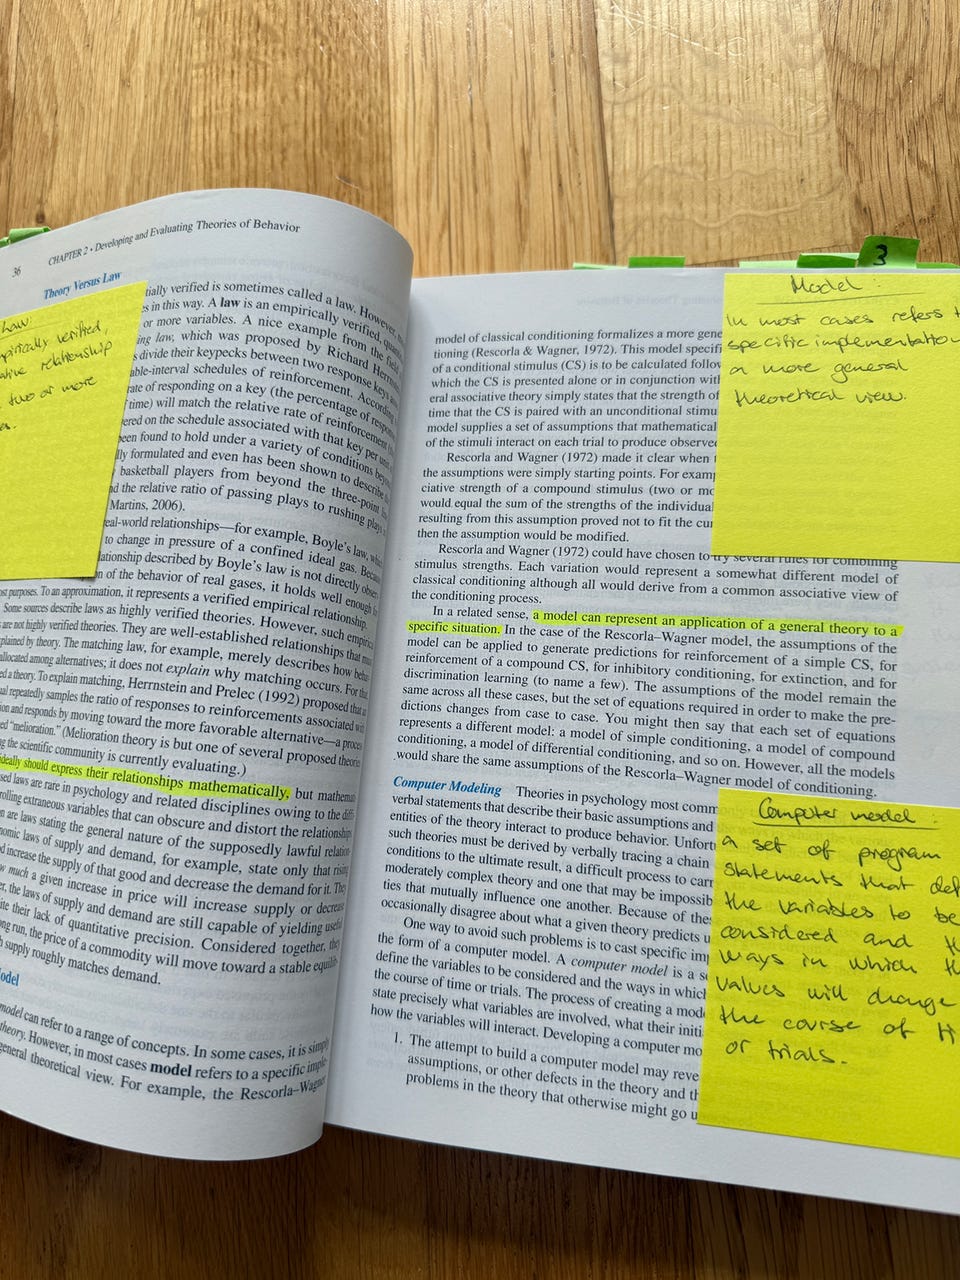 36
CHAPTER 2 • Developing and Evaluating Theories of Behavior
Theory Versus Law
tially verified is sometimes called a law. However,
es in this way. A law is an empirically verified,
or more variables. A nice example from the field
ing law, which was proposed by Richard
s divide their keypecks between two response keys
able-interval schedules of reinforcement.
rate of responding on a key (the percentage of
time) will match the relative rate of reinforcement
ered on the schedule associated with that key per
been found to hold under a variety of conditions
lly formulated and even has been shown to describe
basketball players from beyond the three-point
nd the relative ratio of passing plays to rushing plays
Martins, 2006).
eal-world relationships—for example, Boyle's law,
to change in pressure of a confined ideal gas.
ationship described by Boyle's law is not directly
n of the behavior of real gases, it holds well enough
st purposes. To an approximation, it represents a verified empirical relationship.
Some sources describe laws as highly verified theories. However, such
are not highly verified theories. They are well-established relationships that
plained by theory. The matching law, for example, merely describes how
allocated among alternatives; it does not explain why matching occurs. For
ed a theory. To explain matching, Herrnstein and Prelec (1992) proposed that
ual repeatedly samples the ratio of responses to reinforcements associated
ion and responds by moving toward the more favorable alternative—a
ed “melioration.” (Melioration theory is but one of several proposed
ng the scientific community is currently evaluating.)
ideally should express their relationships mathematically, but
sed laws are rare in psychology and related disciplines owing to the
rolling extraneous variables that can obscure and distort the
n are laws stating the general nature of the supposedly lawful
nomic laws of supply and demand, for example, state only that
d increase the supply of that good and decrease the demand for it. They
w much a given increase in price will increase supply or decrease
er, the laws of supply and demand are still capable of yielding useful
ite their lack of quantitative precision. Considered together, they
ng run, the price of a commodity will move toward a stable
h supply roughly matches demand.
odel
model can refer to a range of concepts. In some cases, it is simply
theory. However, in most cases model refers to a specific
general theoretical view. For example, the Rescorla–Wagner
Law:
mpirically verified,
ative relationship
two or more
3
model of classical conditioning formalizes a more gene
tioning (Rescorla & Wagner, 1972). This model specifi
of a conditional stimulus (CS) is to be calculated follow
which the CS is presented alone or in conjunction with
eral associative theory simply states that the strength of
time that the CS is paired with an unconditional stimu
model supplies a set of assumptions that mathematical
of the stimuli interact on each trial to produce observe
Rescorla and Wagner (1972) made it clear when
the assumptions were simply starting points. For examp
ciative strength of a compound stimulus (two or mo
would equal the sum of the strengths of the individual
resulting from this assumption proved not to fit the cur
then the assumption would be modified.
Rescorla and Wagner (1972) could have chosen to try several rules for combining
stimulus strengths. Each variation would represent a somewhat different model of
classical conditioning although all would derive from a common associative view of
the conditioning process.
In a related sense, a model can represent an application of a general theory to a
specific situation. In the case of the Rescorla–Wagner model, the assumptions of the
model can be applied to generate predictions for reinforcement of a simple CS, for
reinforcement of a compound CS, for inhibitory conditioning, for extinction, and for
discrimination learning (to name a few). The assumptions of the model remain the
same across all these cases, but the set of equations required in order to make the pre-
dictions changes from case to case. You might then say that each set of equations
represents a different model: a model of simple conditioning, a model of compound
conditioning, a model of differential conditioning, and so on. However, all the models
would share the same assumptions of the Rescorla–Wagner model of conditioning.
Computer Modeling Theories in psychology most comm
verbal statements that describe their basic assumptions and
entities of the theory interact to produce behavior. Unfort
such theories must be derived by verbally tracing a chain
conditions to the ultimate result, a difficult process to carr
moderately complex theory and one that may be impossib
ties that mutually influence one another. Because of the
occasionally disagree about what a given theory predicts u
One way to avoid such problems is to cast specific im
the form of a computer model. A computer model is a s
define the variables to be considered and the ways in which
the course of time or trials. The process of creating a mod
state precisely what variables are involved, what their initi
how the variables will interact. Developing a computer mo
1. The attempt to build a computer model may reve
assumptions, or other defects in the theory and th
problems in the theory that otherwise might go u
Model:
In most cases refers t
specific implementatio
a more general
theoretical view.
Computer model:
a set of program
statements that def
the variables to be
considered and th
ways in which th
values will change
the course of ti
or trials.